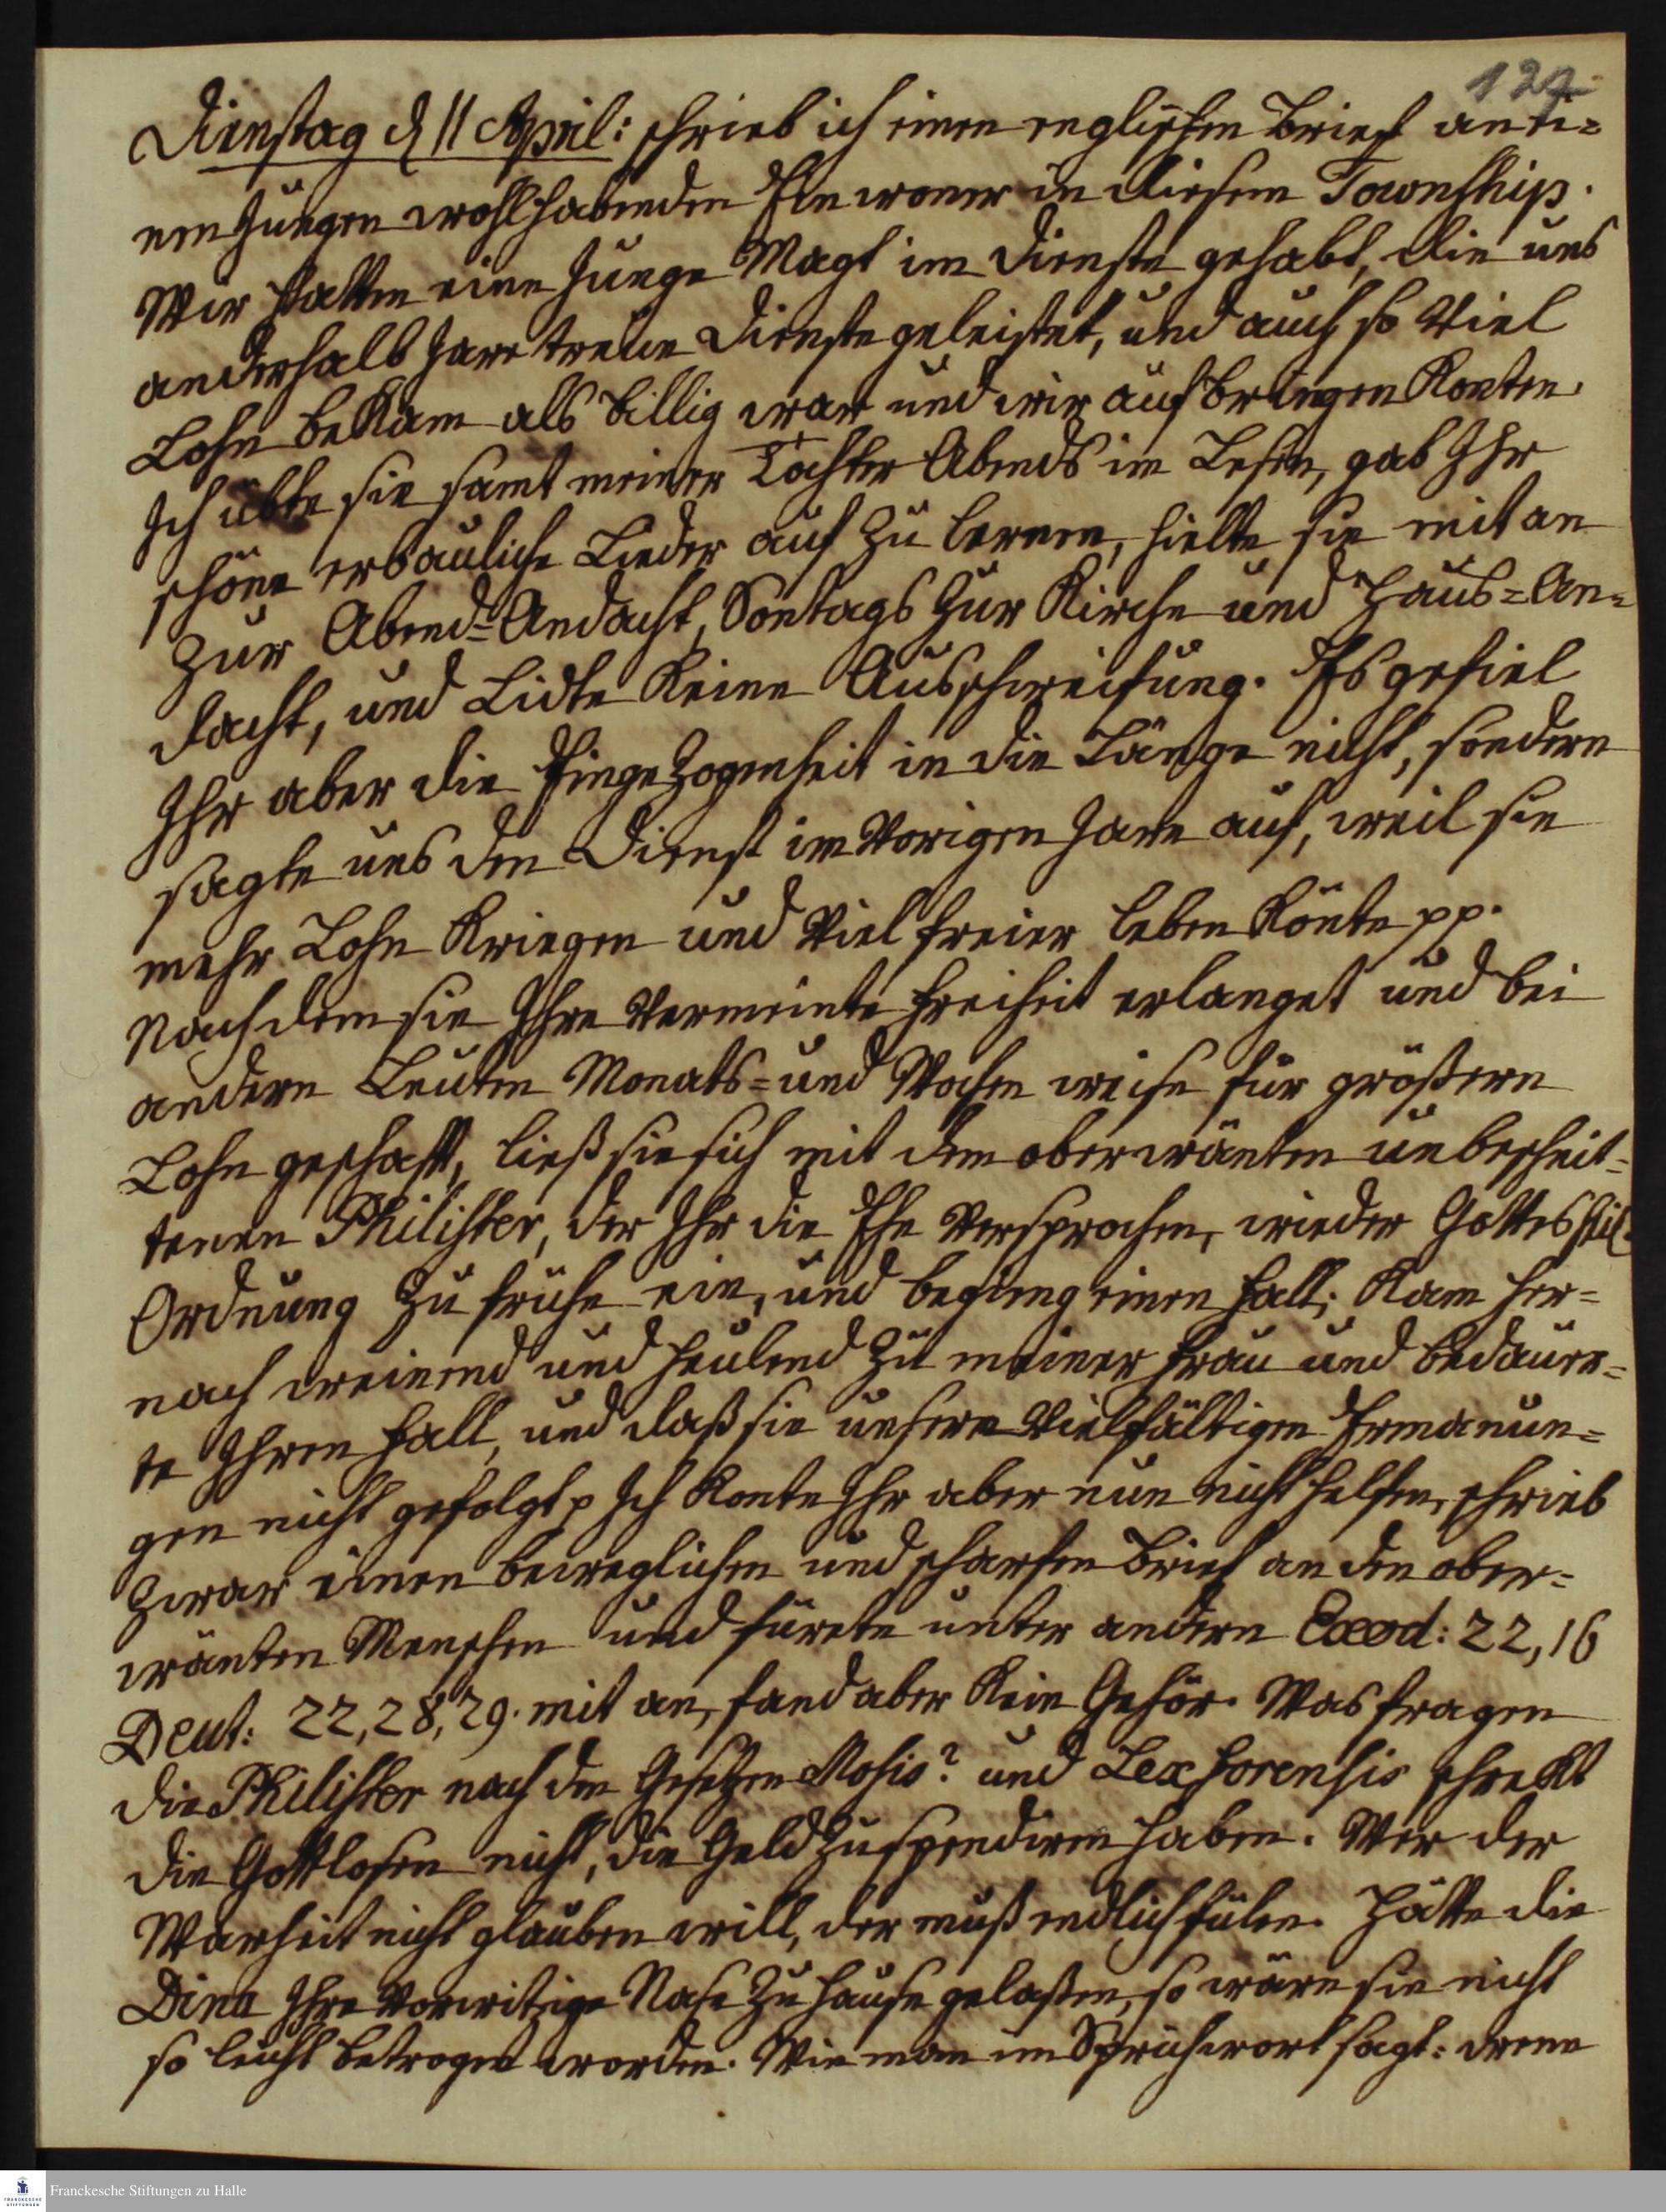 127
Dienstag d 11 April: schrieb ich einen englischen Brief an ei=
nen jungen wohlhabenden Einwoner in diesem Township.
Wir hatten eine junge Magt im Dienste gehabt, die uns
anderhalb Jare treue Dienste geleistet, und auch so viel
Lohn bekam als billig war und wir aufbringen konten.
Ich übte sie samt meiner Tochter Abends im Lesen, gab Ihr
schöne erbauliche Lieder auf zu lernen, hielte sie mit an
zur Abend=Andacht, Sontags zur Kirche und Haus=An=
dacht, und Lidte keine Ausschweifung. Es gefiel
Ihr aber die Eingezogenheit in die Länge nicht, sondern
sagte uns den Dienst im vorigen Jare auf, weil sie
mehr Lohn kriegen und viel freier leben könte pp.
Nachdem sie Ihre vermeinte Freiheit erlanget und bei
andern Leuten Monats= und Wochen weise für größern
Lohn geschafft, ließ sie sich mit dem oberwänten unbeschnit=
tenen Philister, der Ihr die Ehe versprochen, wieder Gottes heil.
Ordnung zu frühe ein, und beging einen Fall; kam her=
nach weinend und heulend zu meiner Frau und bedaure=
te Ihren Fall, und daß sie unsern vielfältigen Ermanun=
gen nicht gefolgt p Ich konte Ihr aber nun nicht helfen, schrieb
zwar einen beweglichen und scharfen Brief an den ober=
wänten Menschen und fürete unter andern Exod: 22,16
Deut: 22,28,29. mit an, fand aber kein Gehör. Was fragen
die Philister nach den Gesetzen Mosis? und Lex forensis schrekt
die Gottlosen nicht, die Geld zu spendiren haben. Wer der
Warheit nicht glauben will, der muß endlich fülen. Hätte die
Dina Ihre vorwitzige Nase zu Hause gelaßen, so wäre sie nicht
so leicht betrogen worden. Wie man im Sprüchwort sagt: wenn
Franckesche Stiftungen zu Halle
FRANCKESCHE STIFTUNGEN